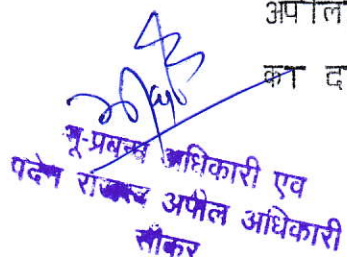 अपील
का द
भू-प्रबन्ध अधिकारी एवं
पदेन राजस्व अपील अधिकारी
सीकर